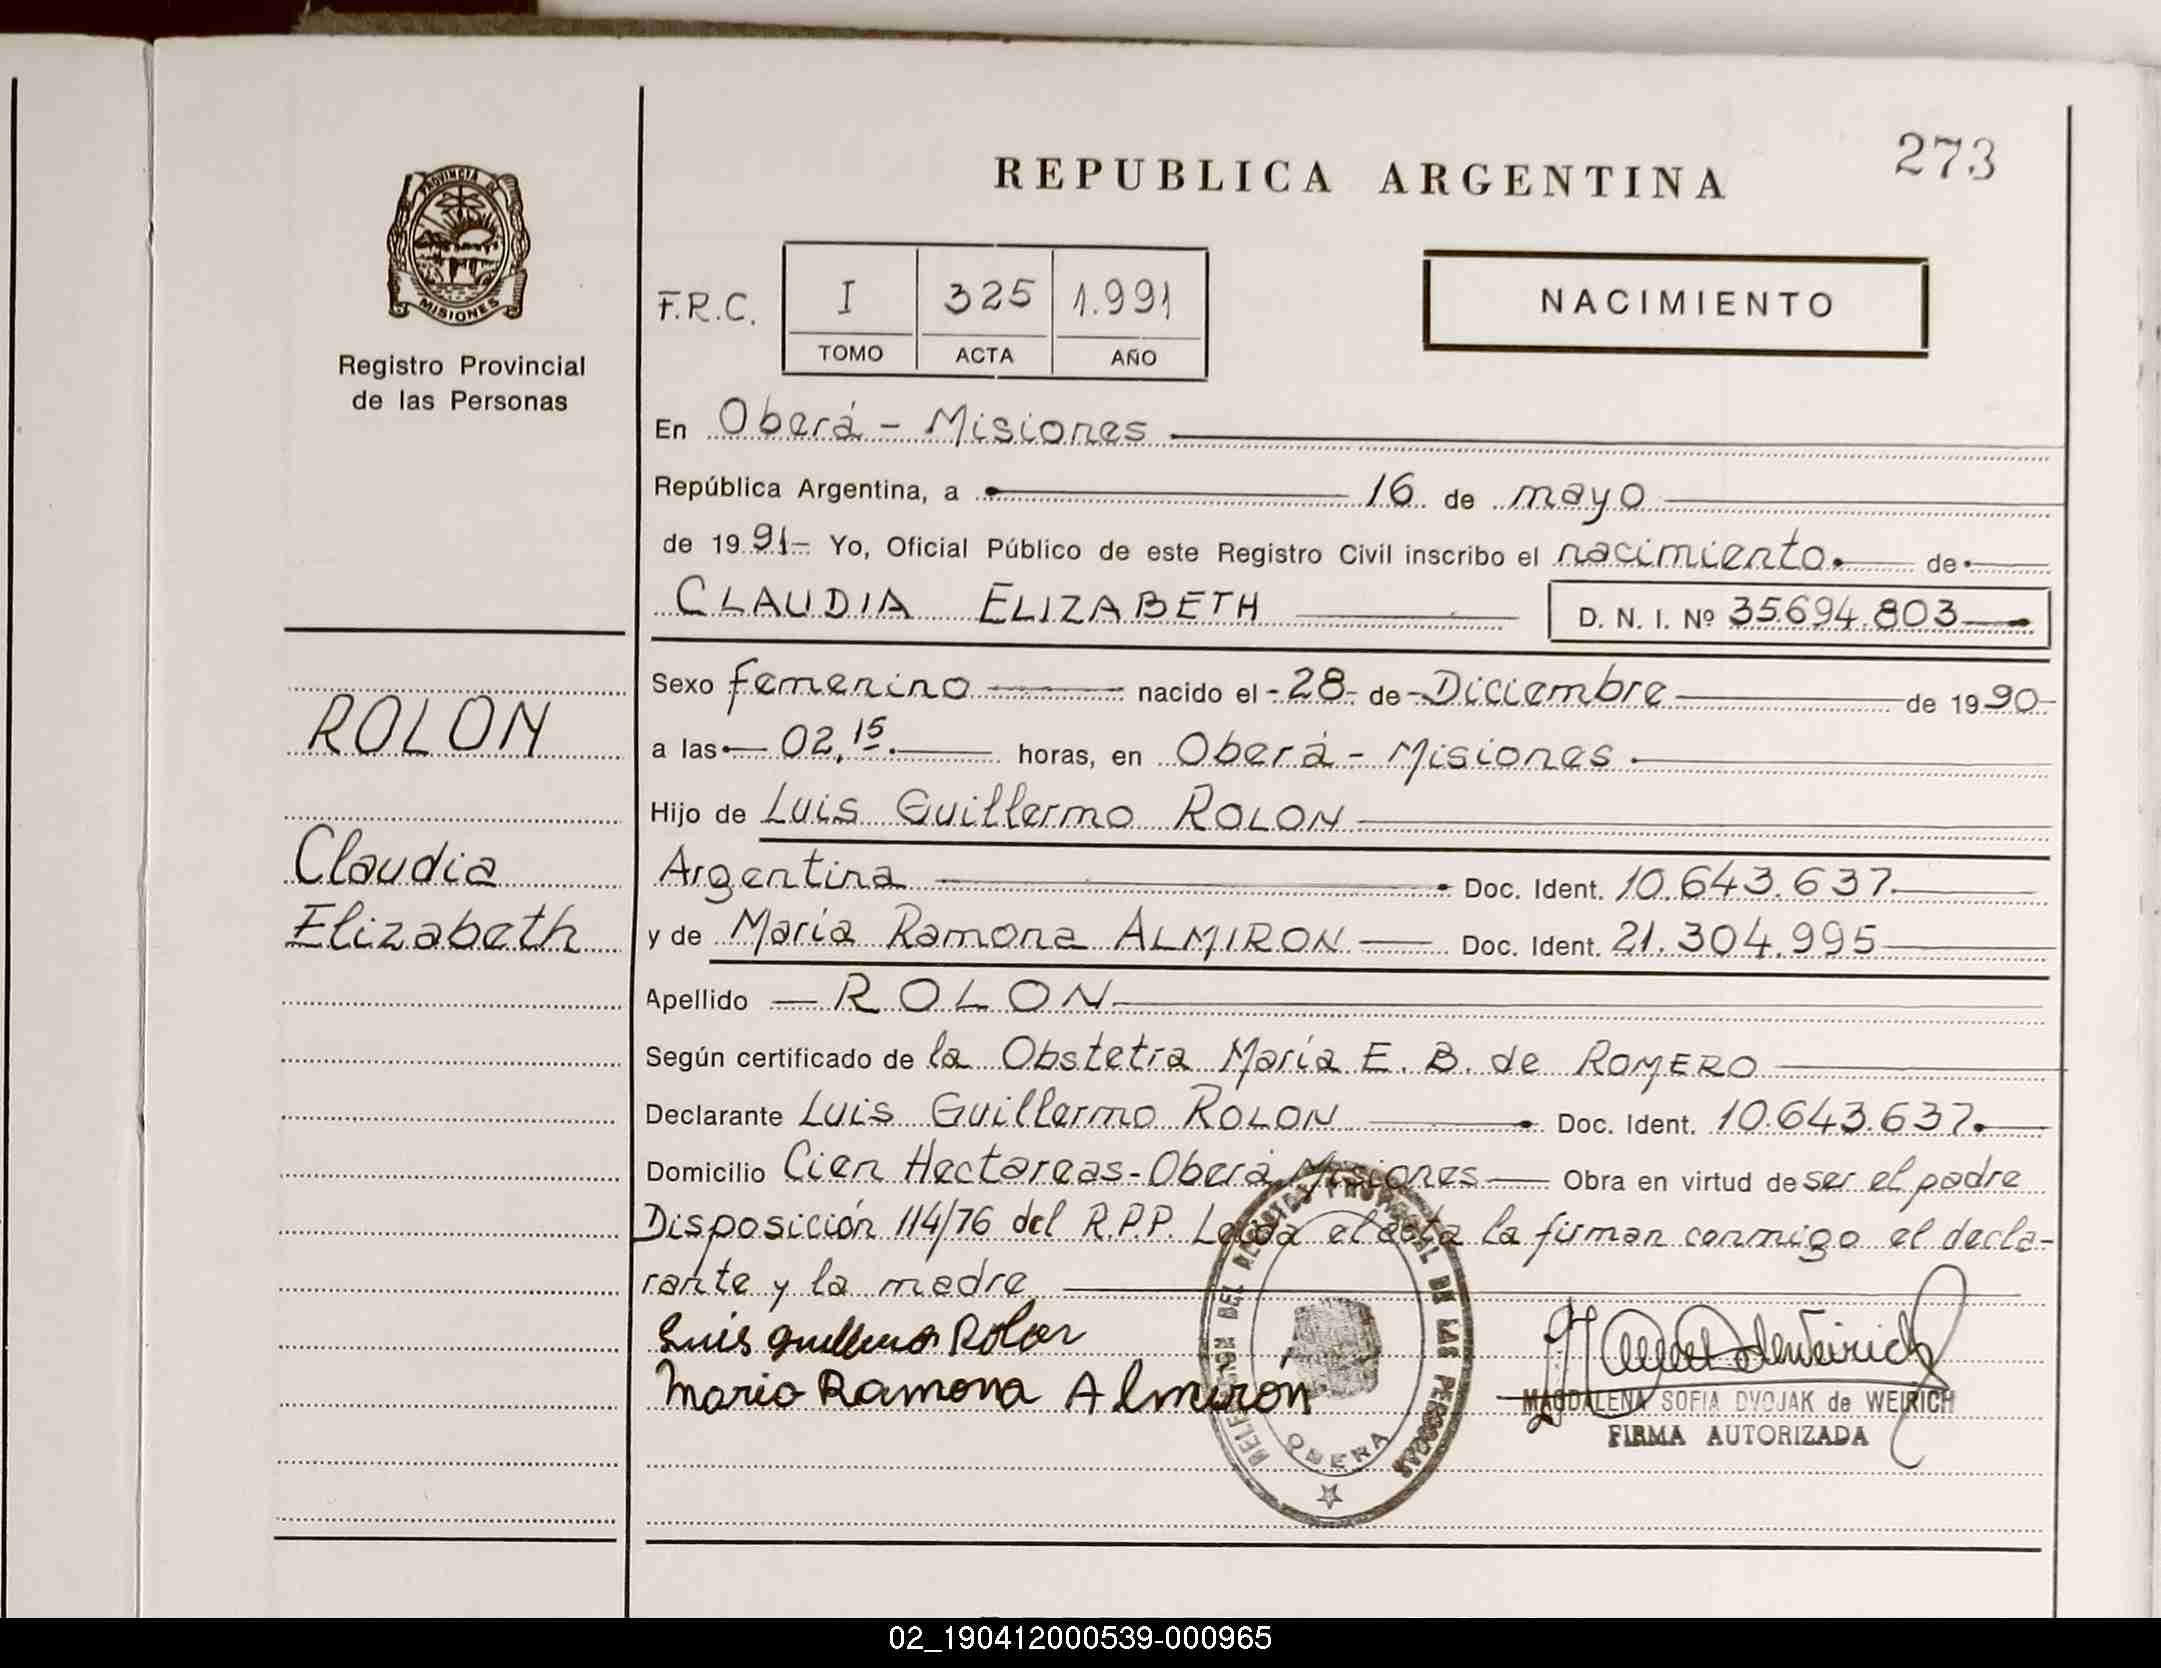 273
REPUBLICA ARGENTINA
PROVINCIA DE
MISIONES
Registro Provincial
de las Personas
F.R.C. I 325 1.991
TOMO ACTA AÑO
NACIMIENTO
En Oberá - Misiones
República Argentina, a 16 de mayo
de 1991- Yo, Oficial Público de este Registro Civil inscribo el nacimiento. de
CLAUDIA ELIZABETH D. N. I. Nº 35694.803
ROLON
Claudia
Elizabeth
Sexo femenino nacido el -28- de -Diciembre de 1990-
a las 02,15 horas, en Oberá - Misiones
Hijo de Luis Guillermo ROLON
Argentina Doc. Ident. 10.643.637.
y de María Ramona ALMIRON Doc. Ident. 21.304.995
Apellido ROLON
Según certificado de la Obstetra María E. B. de ROMERO
Declarante Luis Guillermo ROLON Doc. Ident. 10.643.637.
Domicilio Cien Hectareas-Oberá Misiones Obra en virtud de ser el padre
Disposición 114/76 del R.P.P. Leída el acta la firman conmigo el decla-
rante y la madre
Luis Guillermo Rolon
Maria Ramona Almiron
DEL REGISTRO PROVINCIAL DE LAS PERSONAS
OBERA
MAGDALENA SOFIA DVOJAK de WEIRICH
FIRMA AUTORIZADA
02_190412000539-000965